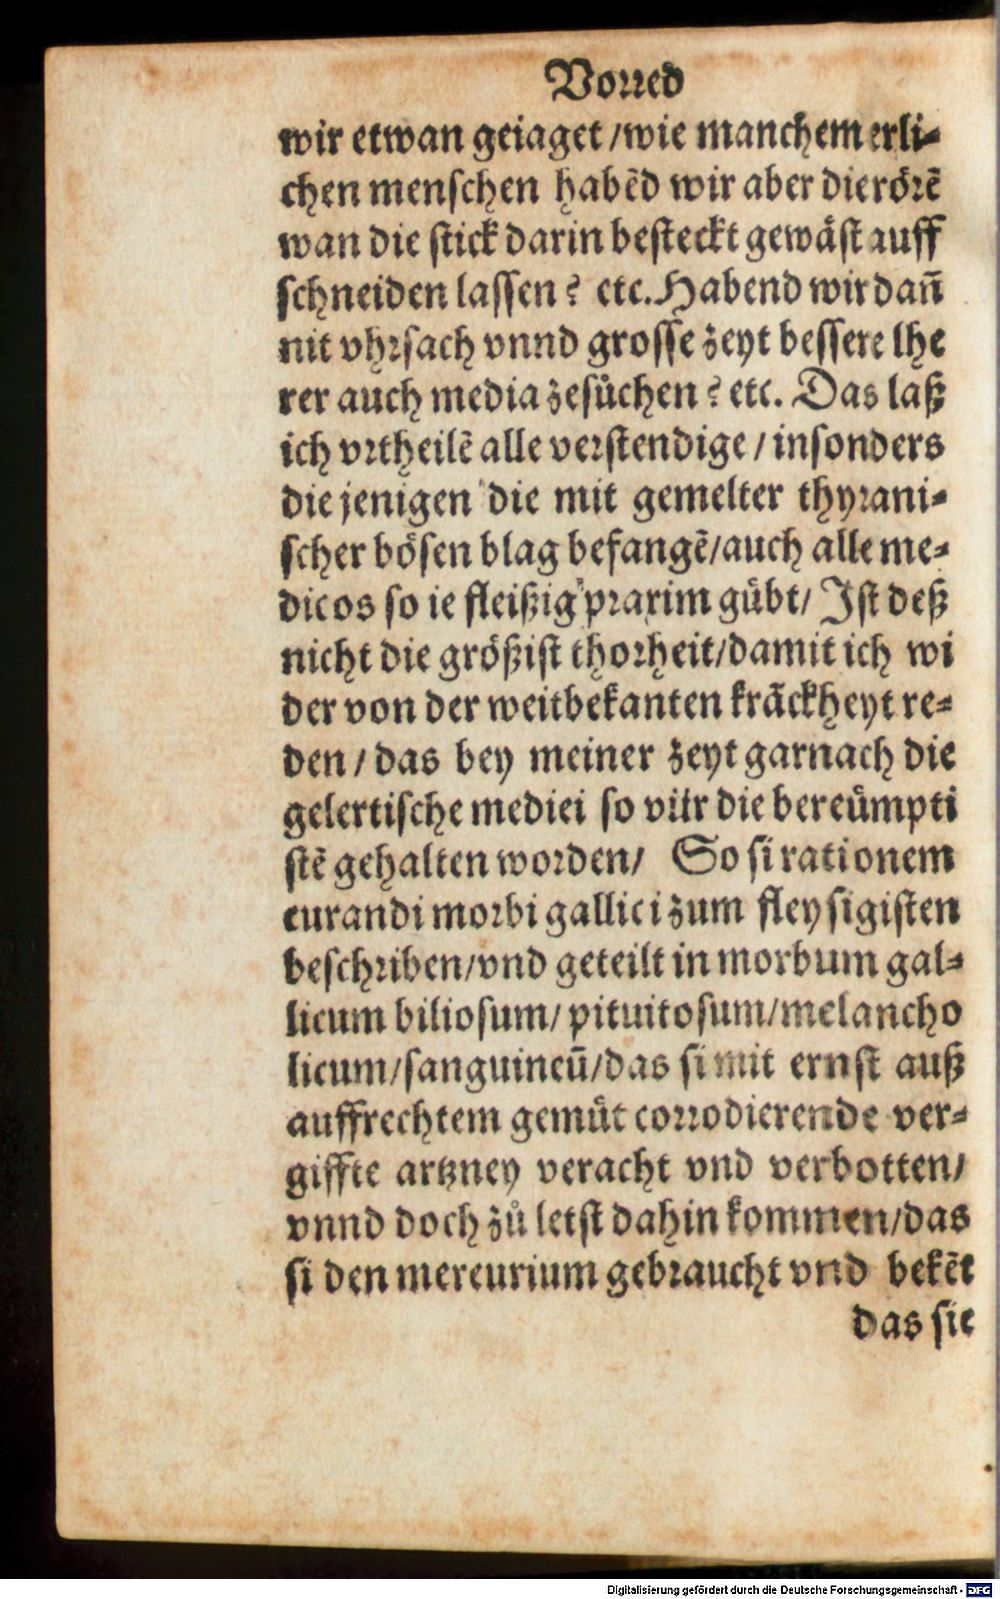 Vorred
wir etwan geiaget/wie manchem erli-
chen menschen habẽd wir aber die rőrẽ
wan die stick darin besteckt gewäst auff
schneiden lassen? etc. Habend wir dañ
nit vhrsach vnnd grosse zeyt bessere lhe
rer auch media zesůchen? etc. Das laß
ich vrtheilẽ alle verstendige / insonders
die jenigen die mit gemelter thyrani-
scher bösen blag befangẽ/auch alle me-
dicos so ie fleißig praxim gübt/ Ist deß
nicht die größist thorheit/damit ich wi
der von der weitbekanten krãckheyt re-
den / das bey meiner zeyt garnach die
gelertische medici so vür die bereümpti
stẽ gehalten worden/ So si rationem
curandi morbi gallici zum fleysigisten
beschriben/vnd geteilt in morbum gal-
licum biliosum/ pituitosum/melancho
licum/sanguineũ/das si mit ernst auß
auffrechtem gemüt corrodierende ver-
giffte artzney veracht vnd verbotten/
vnnd doch zů letst dahin kommen/das
si den mercurium gebraucht vnd bekẽt
das sie
Digitalisierung gefördert durch die Deutsche Forschungsgemeinschaft - DFG